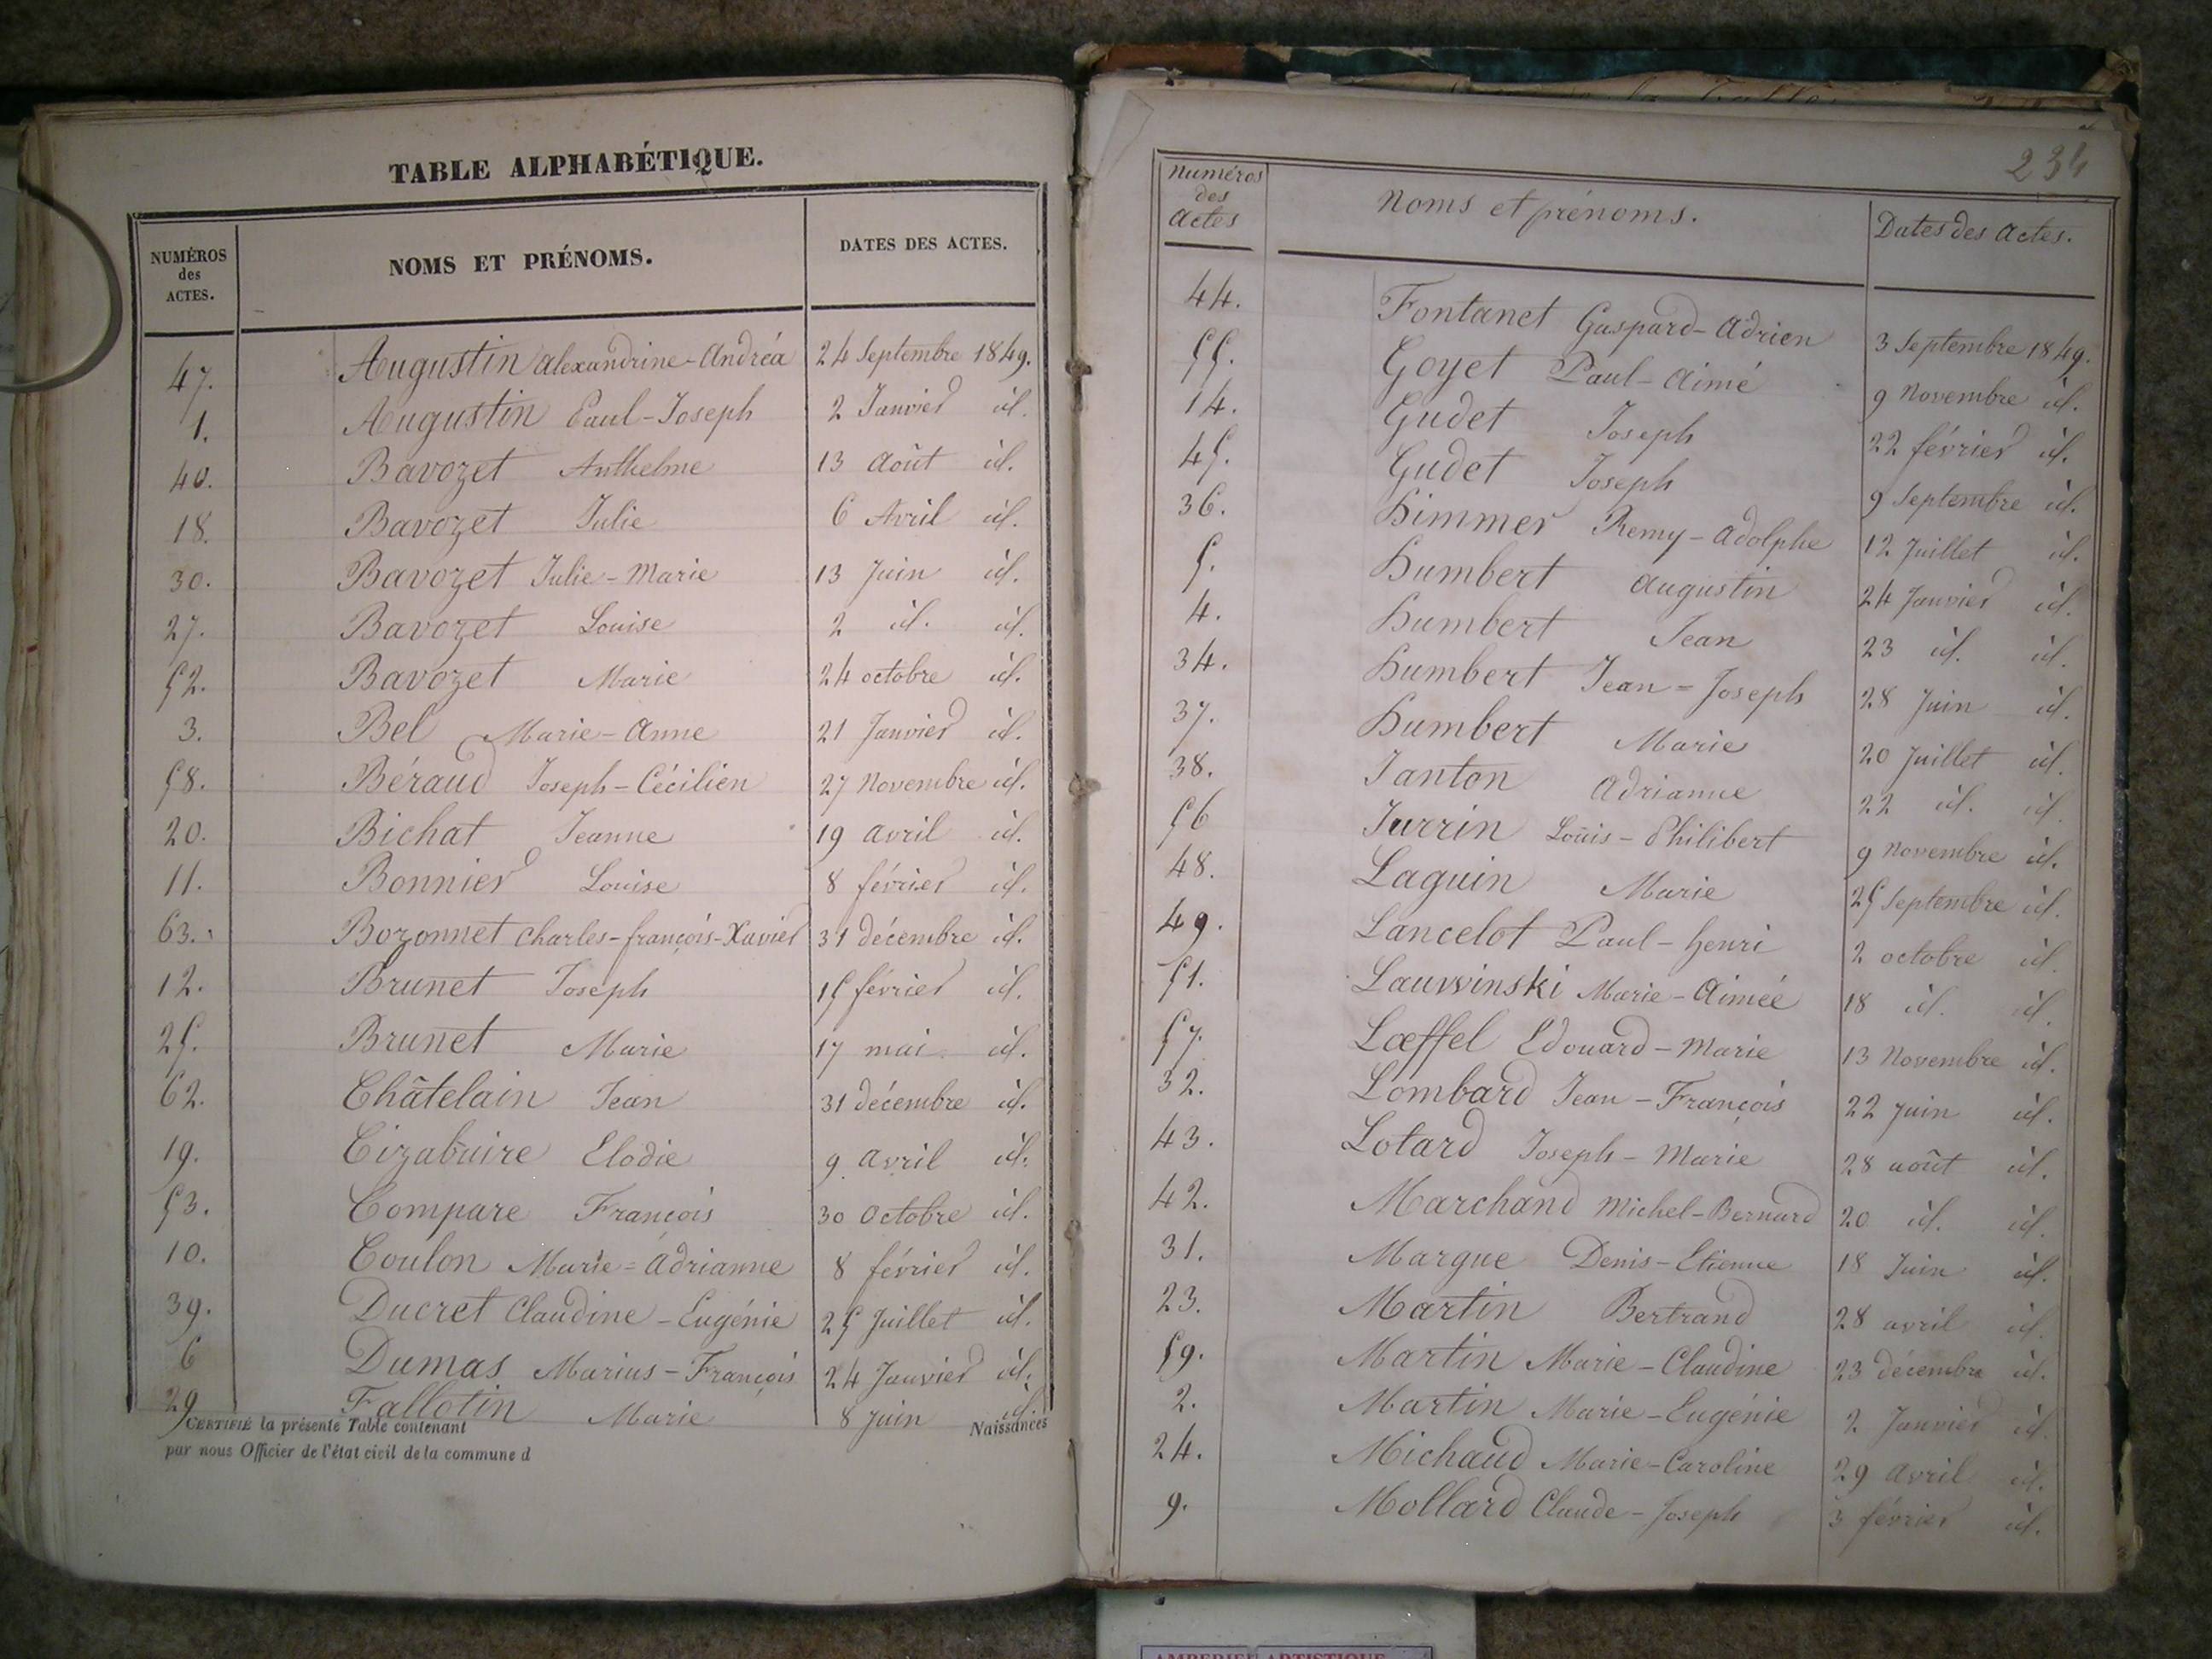 TABLE ALPHABÉTIQUE.
NUMÉROS des ACTES. NOMS ET PRÉNOMS. DATES DES ACTES.
47. Augustin Alexandrine-Andréa 24 Septembre 1849.
1. Augustin Paul-Joseph 2 Janvier id.
40. Bavozet Anthelme 13 Août id.
18. Bavozet Julie 6 Avril id.
30. Bavozet Julie-Marie 13 Juin id.
27. Bavozet Louise 2 id. id.
52. Bavozet Marie 24 octobre id.
3. Bel Marie-Anne 21 Janvier id.
58. Béraud Joseph-Cécilien 27 Novembre id.
20. Bichat Jeanne 19 avril id.
11. Bonnier Louise 8 février id.
63. Bozonnet Charles-françois-Xavier 31 décembre id.
12. Brunet Joseph 15 février id.
25. Brunet Marie 17 mai id.
62. Châtelain Jean 31 décembre id.
19. Cizabuire Elodie 9 avril id.
53. Compare François 30 Octobre id.
10. Coulon Marie=Adrianne 8 février id.
39. Ducret Claudine-Eugénie 25 Juillet id.
6 Dumas Marius-François 24 Janvier id.
29 Fallotin Marie 8 Juin id.
CERTIFIÉ la présente Table contenant Naissances
par nous Officier de l'état civil de la commune d
234
Numéros des Actes Noms et prénoms. Dates des Actes.
44. Fontanet Gaspard-Adrien 3 Septembre 1849.
55. Goyet Paul-Aimé 9 Novembre id.
14. Gudet Joseph 22 février id.
45. Gudet Joseph 9 Septembre id.
36. Himmer Remy-Adolphe 12 Juillet id.
5. Humbert Augustin 24 Janvier id.
4. Humbert Jean 23 id. id.
34. Humbert Jean=Joseph 28 Juin id.
37. Humbert Marie 20 Juillet id.
38. Janton Adrianne 22 id. id.
56 Jurrin Louis-Philibert 9 Novembre id.
48. Laguin Marie 25 Septembre id.
49. Lancelot Paul-henri 2 octobre id.
51. Lauwinski Marie-Aimée 18 id. id.
57. Lœffel Edouard-Marie 13 Novembre id.
32. Lombard Jean-François 22 Juin id.
43. Lotard Joseph-Marie 28 août id.
42. Marchand Michel-Bernard 20 id. id.
31. Margue Denis-Etienne 18 Juin id.
23. Martin Bertrand 28 avril id.
59. Martin Marie-Claudine 23 décembre id.
2. Martin Marie-Eugénie 2 Janvier id.
24. Michaud Marie-Caroline 29 Avril id.
9. Mollard Claude-Joseph 3 février id.
AMBERIEU ARTISTIQUE